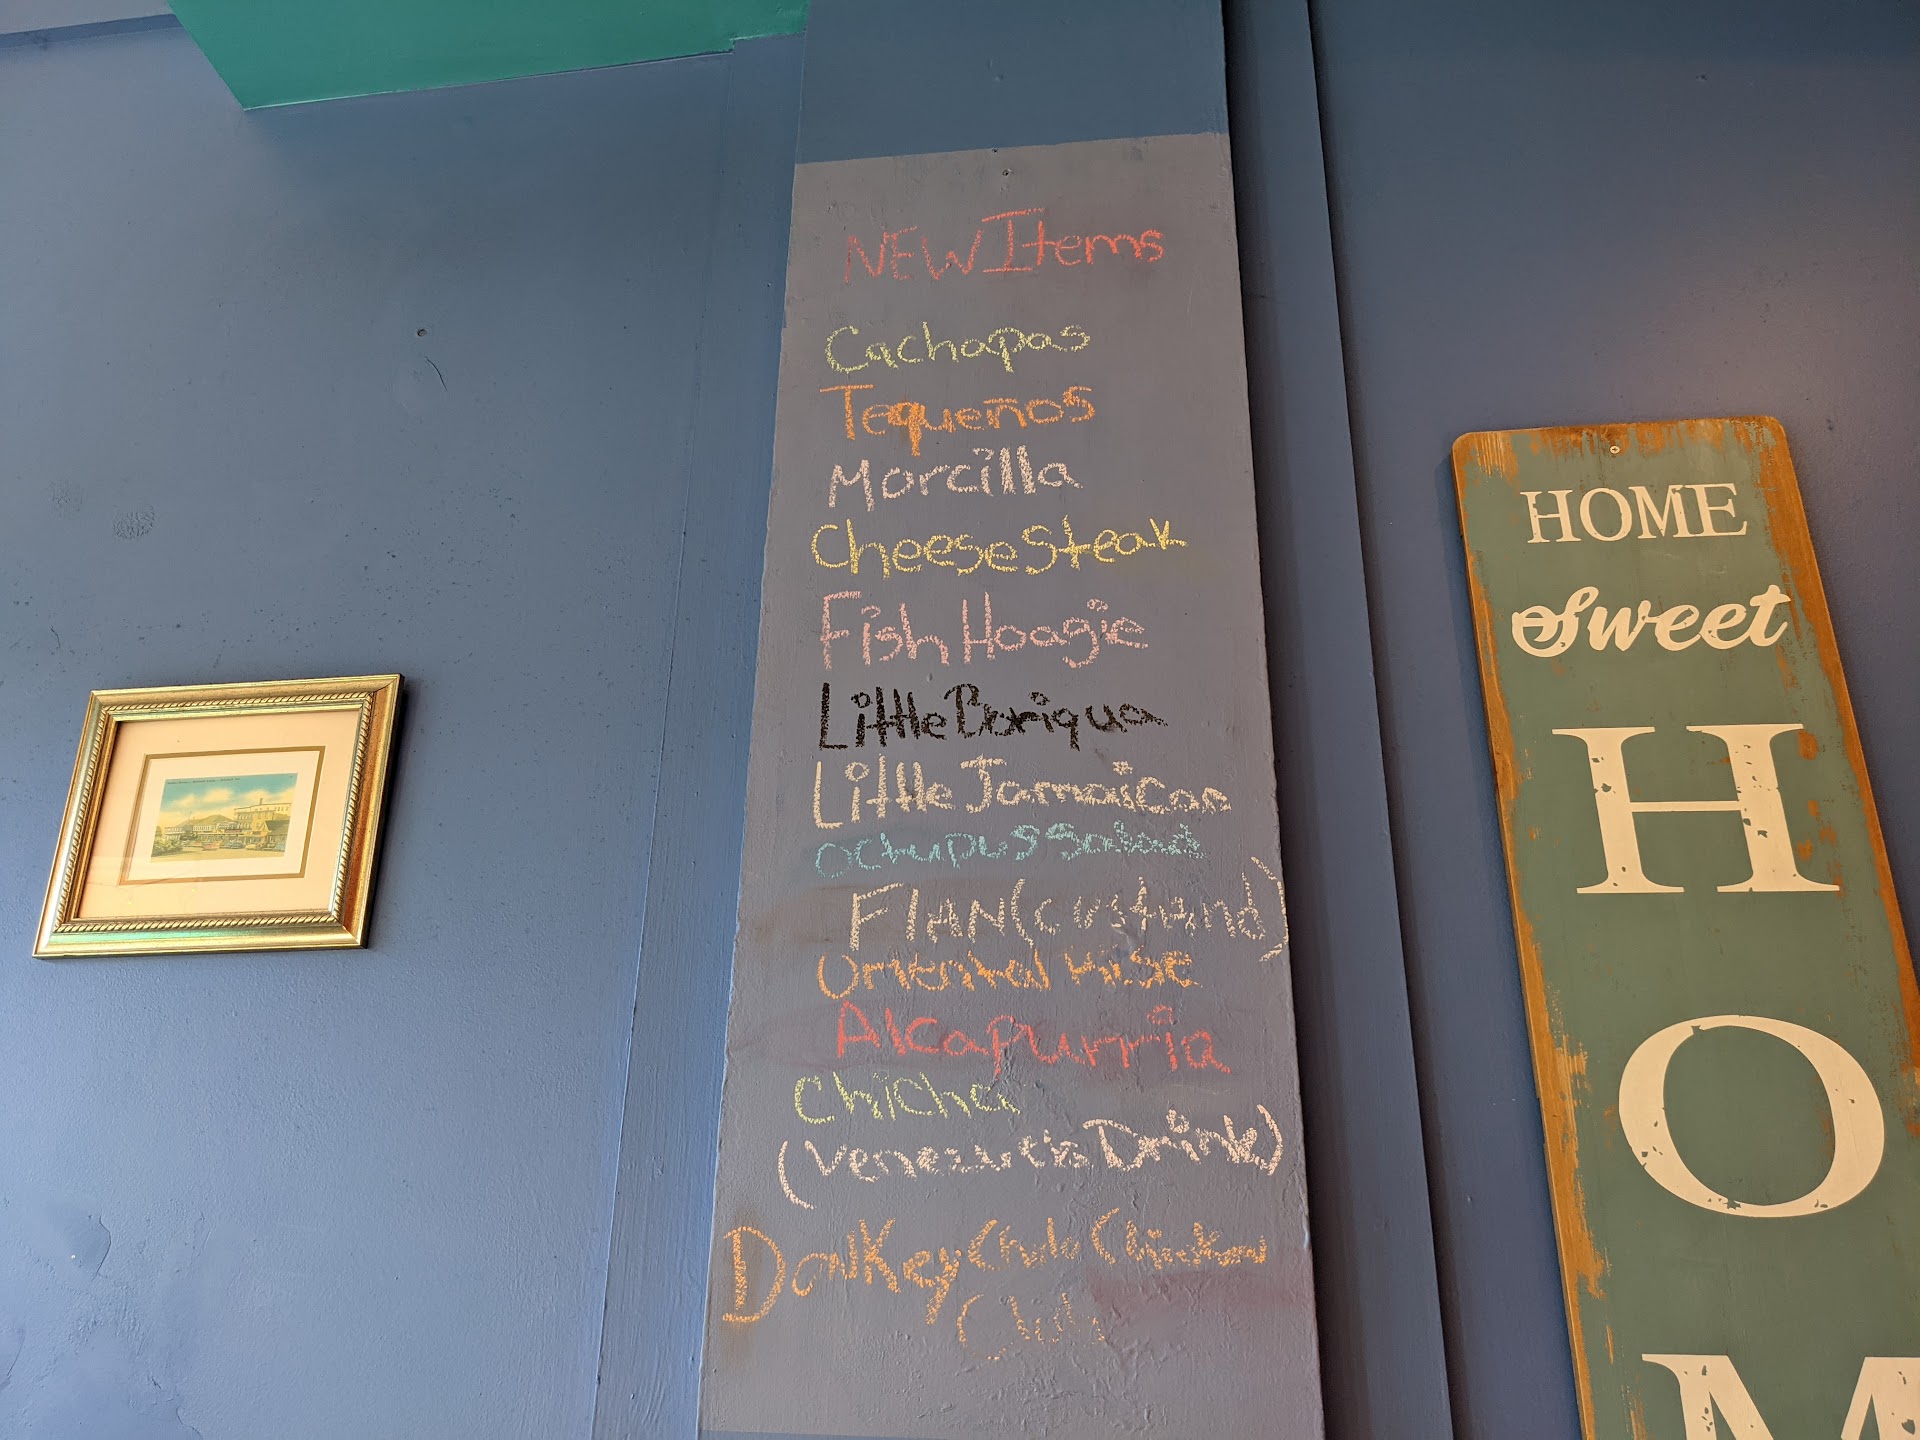 NEW Items
Cachapas
Tequeños
Morcilla
Cheese Steak
Fish Hoagie
Little Boriqua
Little Jamaican
Octupus Salad
FlAN (custand)
Oriental
Alcapurria
Chicha
Drink)
DonKey Chicken
HOME
Sweet
H
O
M